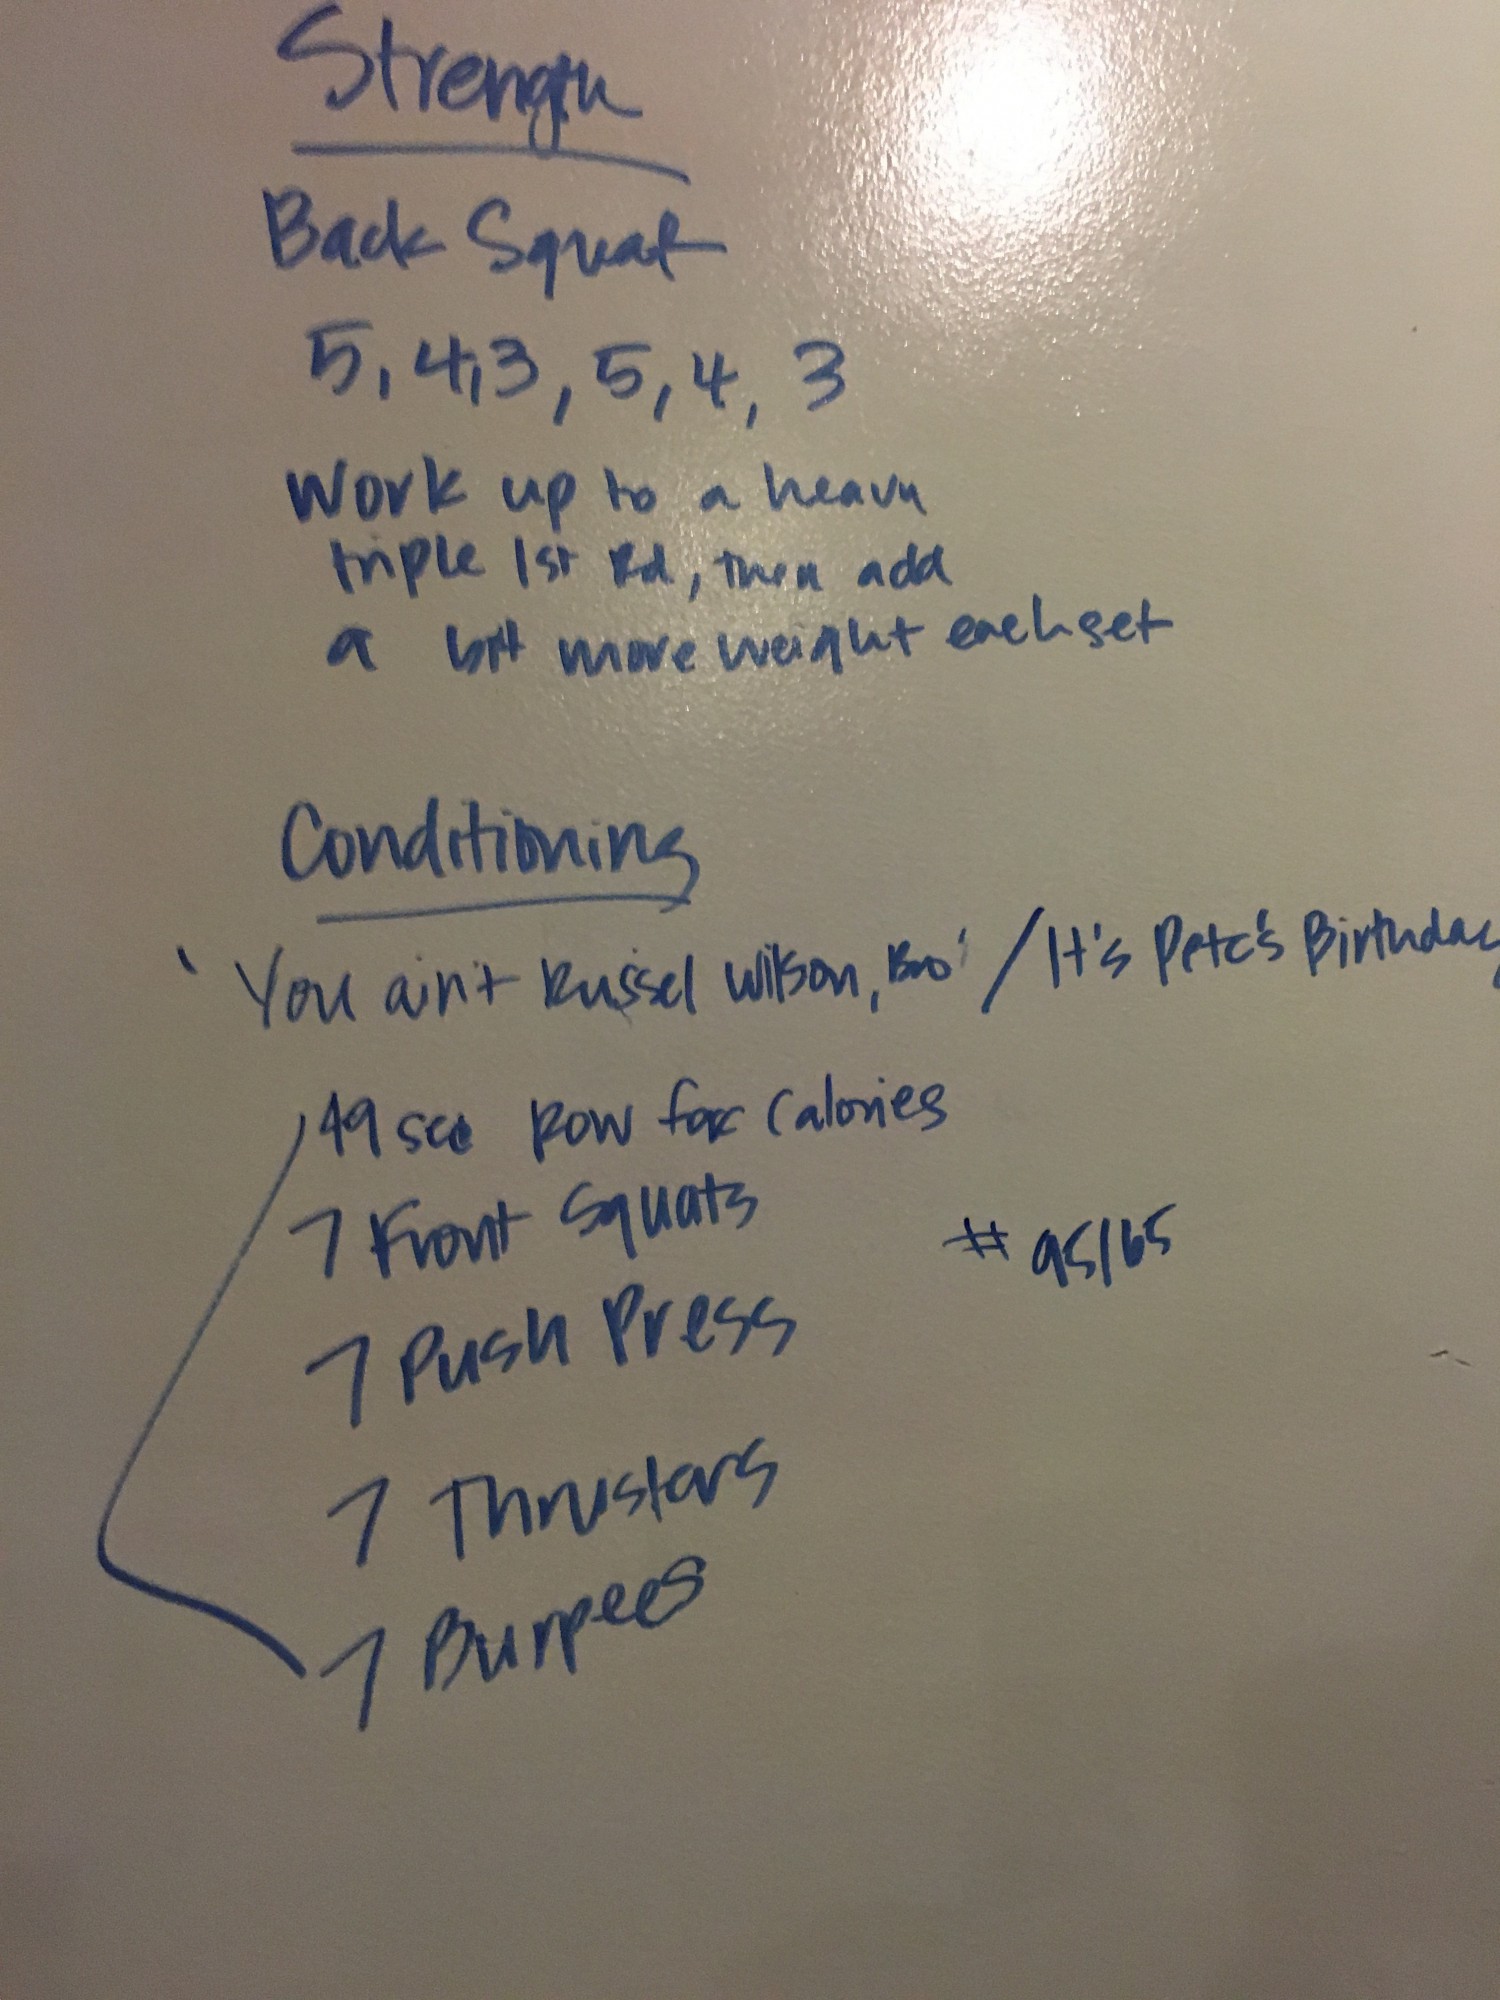 Strength
Back Squat
5, 4, 3, 5, 4, 3
Work up to a heavy
triple 1st Rd, then add
a bit more weight each set
Conditioning
'You ain't Russel Wilson, Bro' / It's Pete's Birthday
49 sec Row for Calories
7 Front Squats # 95/65
7 Push Press
7 Thrusters
7 Burpees